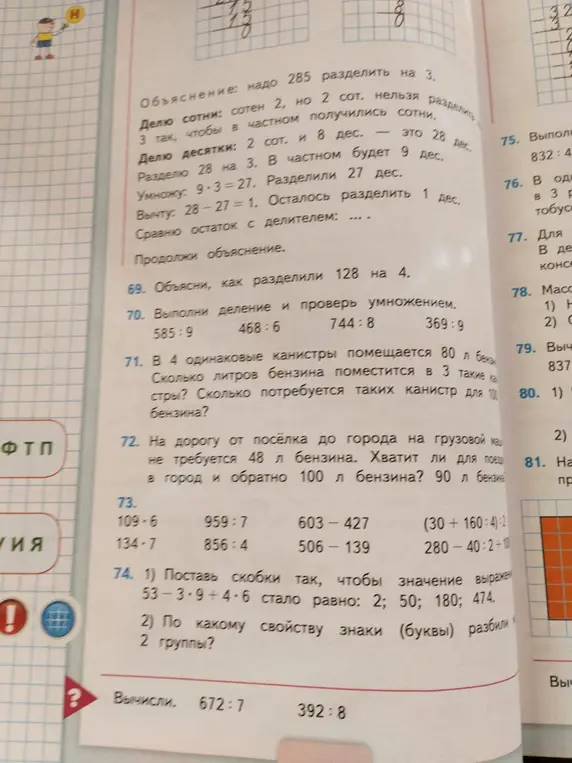 Н
15
15
0
8
0
Объяснение: надо 285 разделить на 3.
Делю сотни: сотен 2, но 2 сот. нельзя разделить
3 так, чтобы в частном получились сотни.
Делю десятки: 2 сот. и 8 дес. — это 28 дес.
Разделю 28 на 3. В частном будет 9 дес.
Умножу: 9 · 3 = 27. Разделили 27 дес.
Вычту: 28 − 27 = 1. Осталось разделить 1 дес.
Сравню остаток с делителем: ... .
Продолжи объяснение.
69. Объясни, как разделили 128 на 4.
70. Выполни деление и проверь умножением.
585 : 9 468 : 6 744 : 8 369 : 9
71. В 4 одинаковые канистры помещается 80 л
Сколько литров бензина поместится в 3 такие
стры? Сколько потребуется таких канистр для 100
бензина?
72. На дорогу от посёлка до города на грузовой
не требуется 48 л бензина. Хватит ли для
в город и обратно 100 л бензина? 90 л
73.
109 · 6 959 : 7 603 − 427 (30 + 160 : 4) : 2
134 · 7 856 : 4 506 − 139 280 − 40 : 2 +
74. 1) Поставь скобки так, чтобы значение
53 − 3 · 9 + 4 · 6 стало равно: 2; 50; 180; 474.
2) По какому свойству знаки (буквы) разбили
2 группы?
? Вычисли. 672 : 7 392 : 8
Ф Т П
У И Я
!
75.
832 : 4
76. В
в 3
77. Для
В
78.
1)
2)
79.
837
80. 1)
2)
81. На